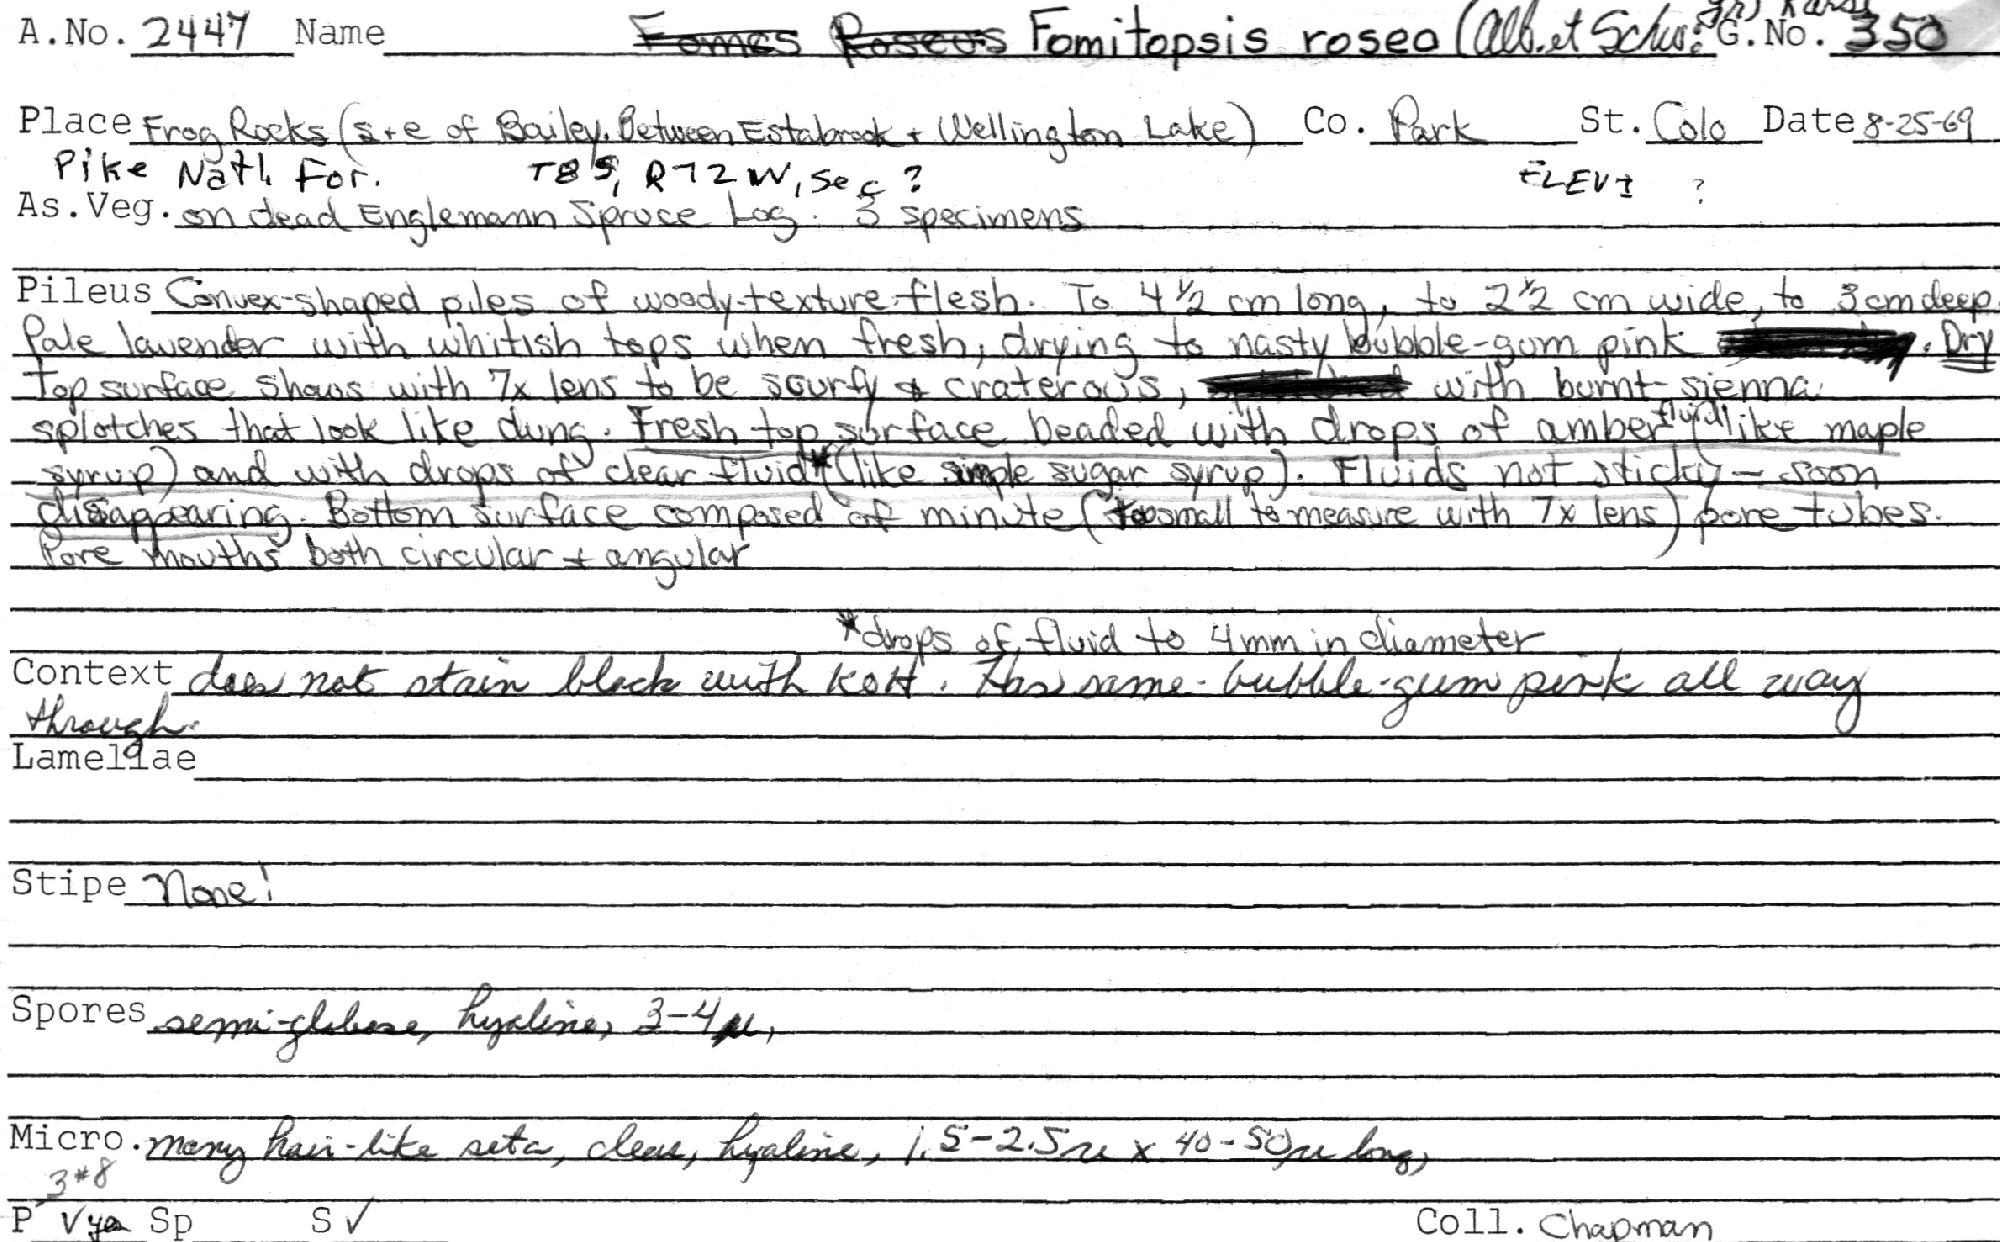 A.No. 2447 Name Fomes Roseus Fomitopsis roseo (Alb. et Schw: Fr) Karst G.No. 350
Place Frog Rocks (s+e of Bailey. Between Estabrook + Wellington Lake) Co. Park St. Colo Date 8-25-69
Pike Nat'l. For. T8S, R72W, Sec ? ELEV± ?
As.Veg. on dead Englemann Spruce Log. 3 specimens
Pileus Convex-shaped piles of woody-texture flesh. To 4½ cm long, to 2½ cm wide, to 3cm deep.
Pale lavender with whitish tops when fresh, drying to nasty bubble-gum pink. Dry
top surface shows with 7x lens to be scurfy & craterous, with burnt-sienna
splotches that look like dung. Fresh top surface beaded with drops of amber fluid (like maple
syrup) and with drops of clear fluid* (like simple sugar syrup). Fluids not sticky — soon
disappearing. Bottom surface composed of minute (too small to measure with 7x lens) pore tubes.
Pore mouths both circular + angular
*drops of fluid to 4mm in diameter
Context does not stain black with KOH. Has same-bubble-gum pink all way
through.
Lamellae
Stipe None!
Spores semi-globose, hyaline, 3-4µ,
Micro. many hair-like seta, clear, hyaline, 1.5-2.5µ x 40-50µ long,
3#8
P V Sp S ✓ Coll. Chapman